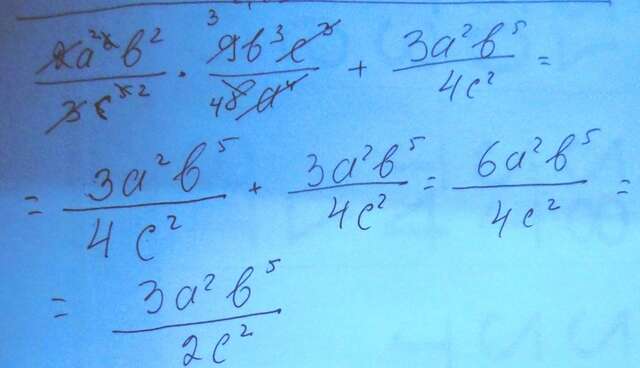 2a² b² / 3c⁵ ² · 3 9b³c³ / 4 8a⁴ + 3a²b⁵ / 4c² =
= 3a²b⁵ / 4c² + 3a²b⁵ / 4c² = 6a²b⁵ / 4c² =
= 3a²b⁵ / 2c²